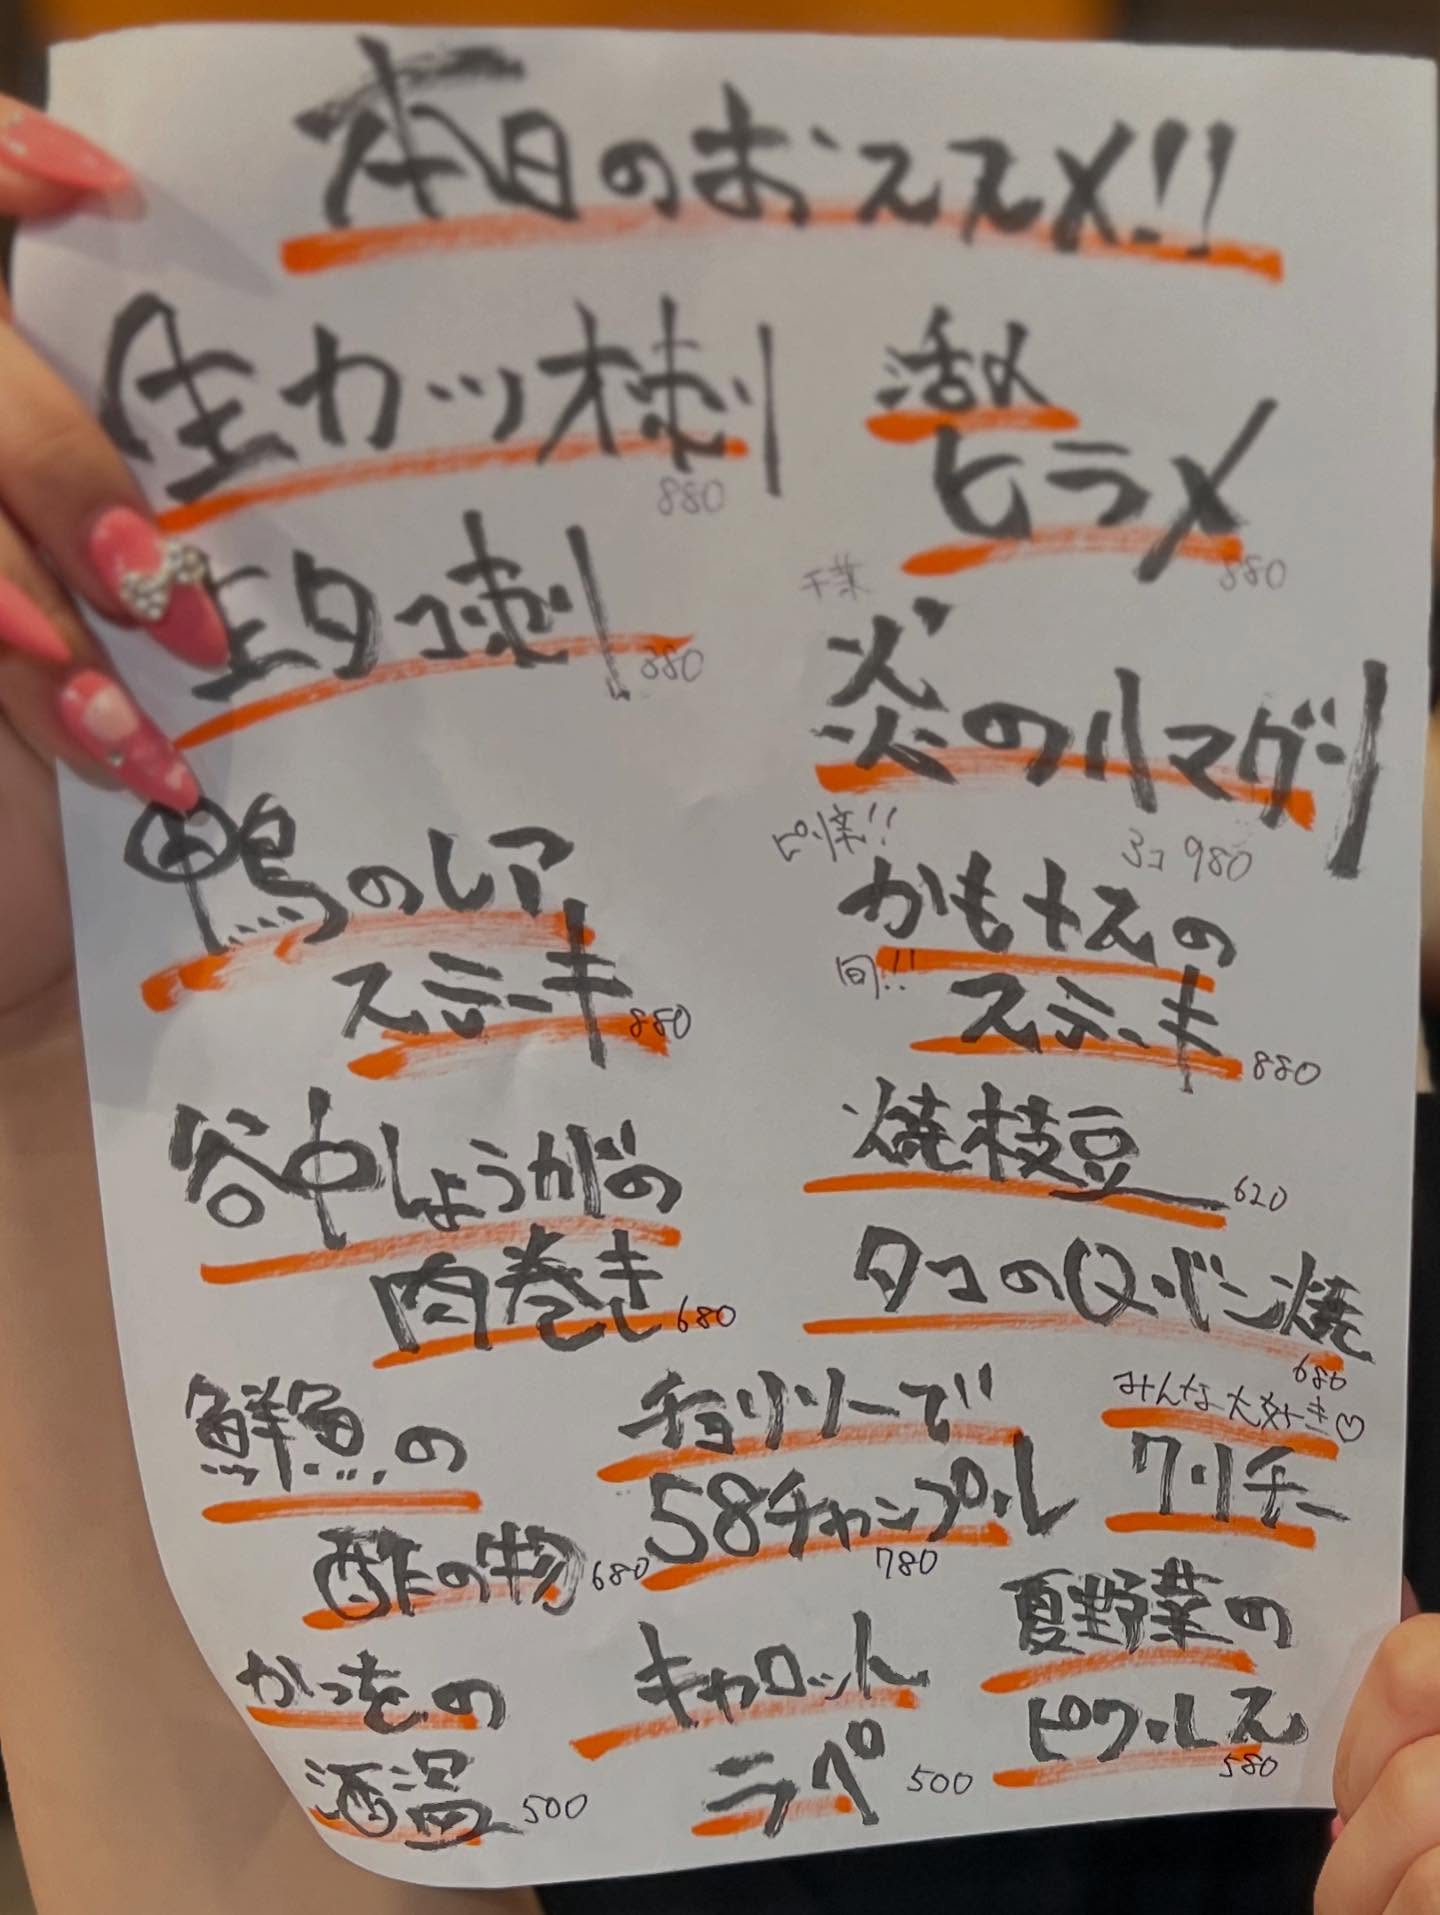 本日のおススメ!!
生カツオ刺
880
活〆
ヒラメ
880
生タコ刺
880
千葉
炎のハマグリ
3コ 980
鴨のレア
ステーキ 880
ピリ辛!!
かもナスの
旬!!
ステーキ 880
谷中しょうがの
肉巻き 680
焼枝豆 620
タコのロ・バン焼
680
鮮魚の
酢の物 680
チョリソーで
58チャンプ・ル
780
みんな大好き♡
クリチー
かつをの
酒盗 500
キャロット
ラペ 500
夏野菜の
ピクルス
580